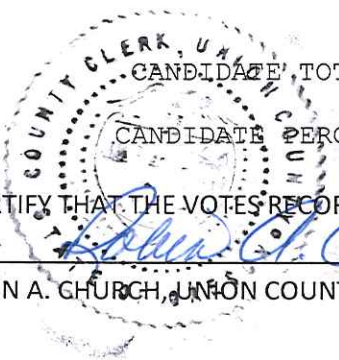 COUNTY CLERK, UNION COUNTY
CANDIDATE TOT
CANDIDATE PERC
TIFY THAT THE VOTES RECOR
N A. CHURCH, UNION COUNT